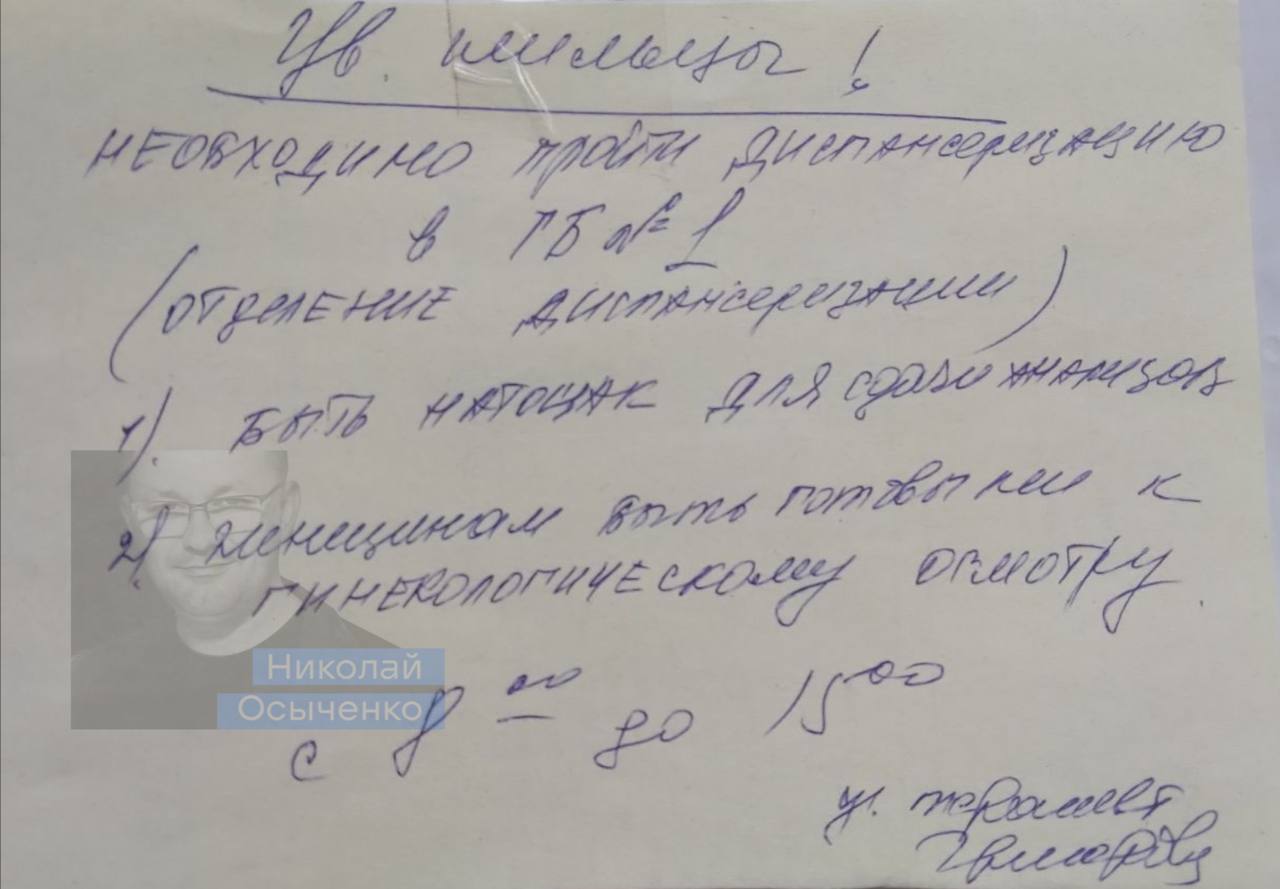 Ув. жильцы!
НЕОБХОДИМО пройти диспансеризацию
в ГБ № 1
(ОТДЕЛЕНИЕ диспансеризации)
1). БЫТЬ НАТОЩАК ДЛЯ сдачи анализов
2). женщинам быть готовыми к
ГИНЕКОЛОГИЧЕСКОМУ осмотру.
Николай
Осыченко
с 8 00 до 15 00
уч. терапевт